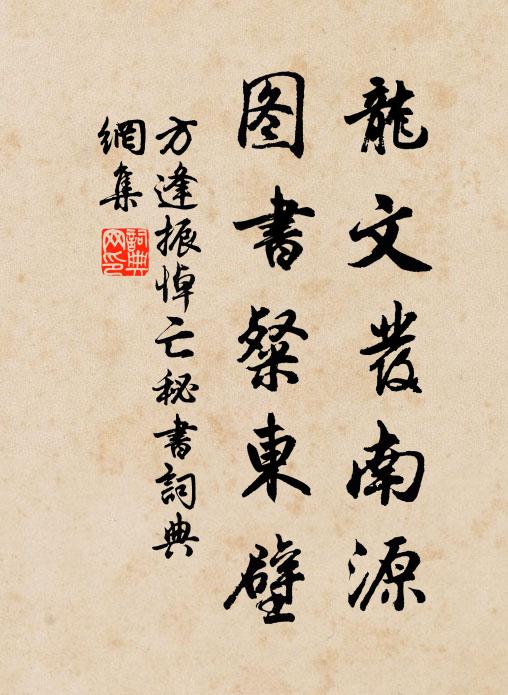 龍文發南源
图書粲東壁
方逢振悼亡秘書詞典
網集
詞典網印